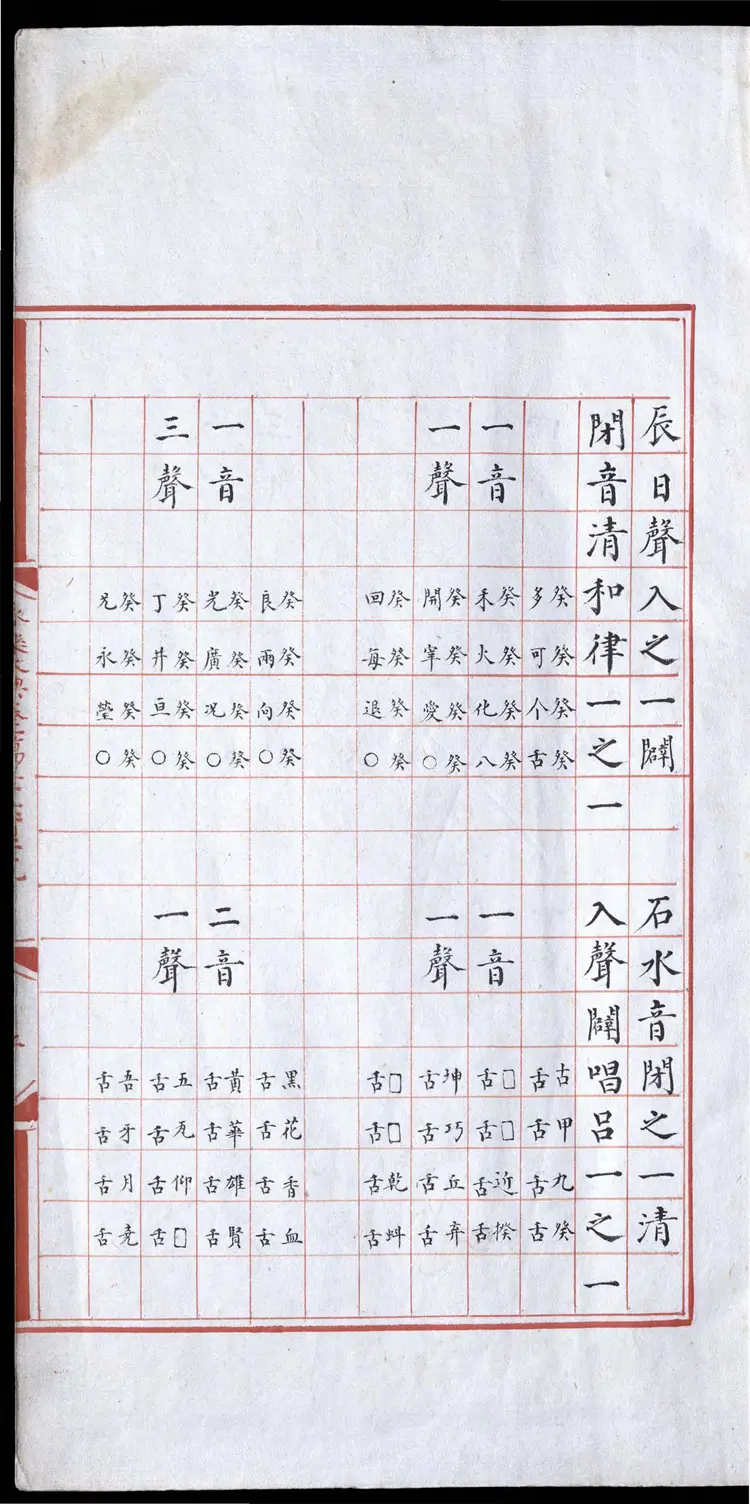 辰日聲入之一闢　石水音閉之一清
閉音清和律一之一　入聲闢唱呂一之一
癸多　癸可　癸个　癸舌　古舌　甲舌　九舌　癸舌
一音　癸禾　癸火　癸化　癸八　一音　□舌　□舌　近舌　揆舌
一聲　癸開　癸宰　癸愛　癸○　一聲　坤舌　巧舌　丘舌　弃舌
癸回　癸每　癸退　癸○　□舌　□舌　乾舌　蚪舌
癸良　癸兩　癸向　癸○　黑舌　花舌　香舌　血舌
一音　癸光　癸廣　癸况　癸○　二音　黃舌　華舌　雄舌　賢舌
三聲　癸丁　癸井　癸亘　癸○　一聲　五舌　瓦舌　仰舌　□舌
癸兄　癸永　癸瑩　癸○　吾舌　牙舌　月舌　堯舌